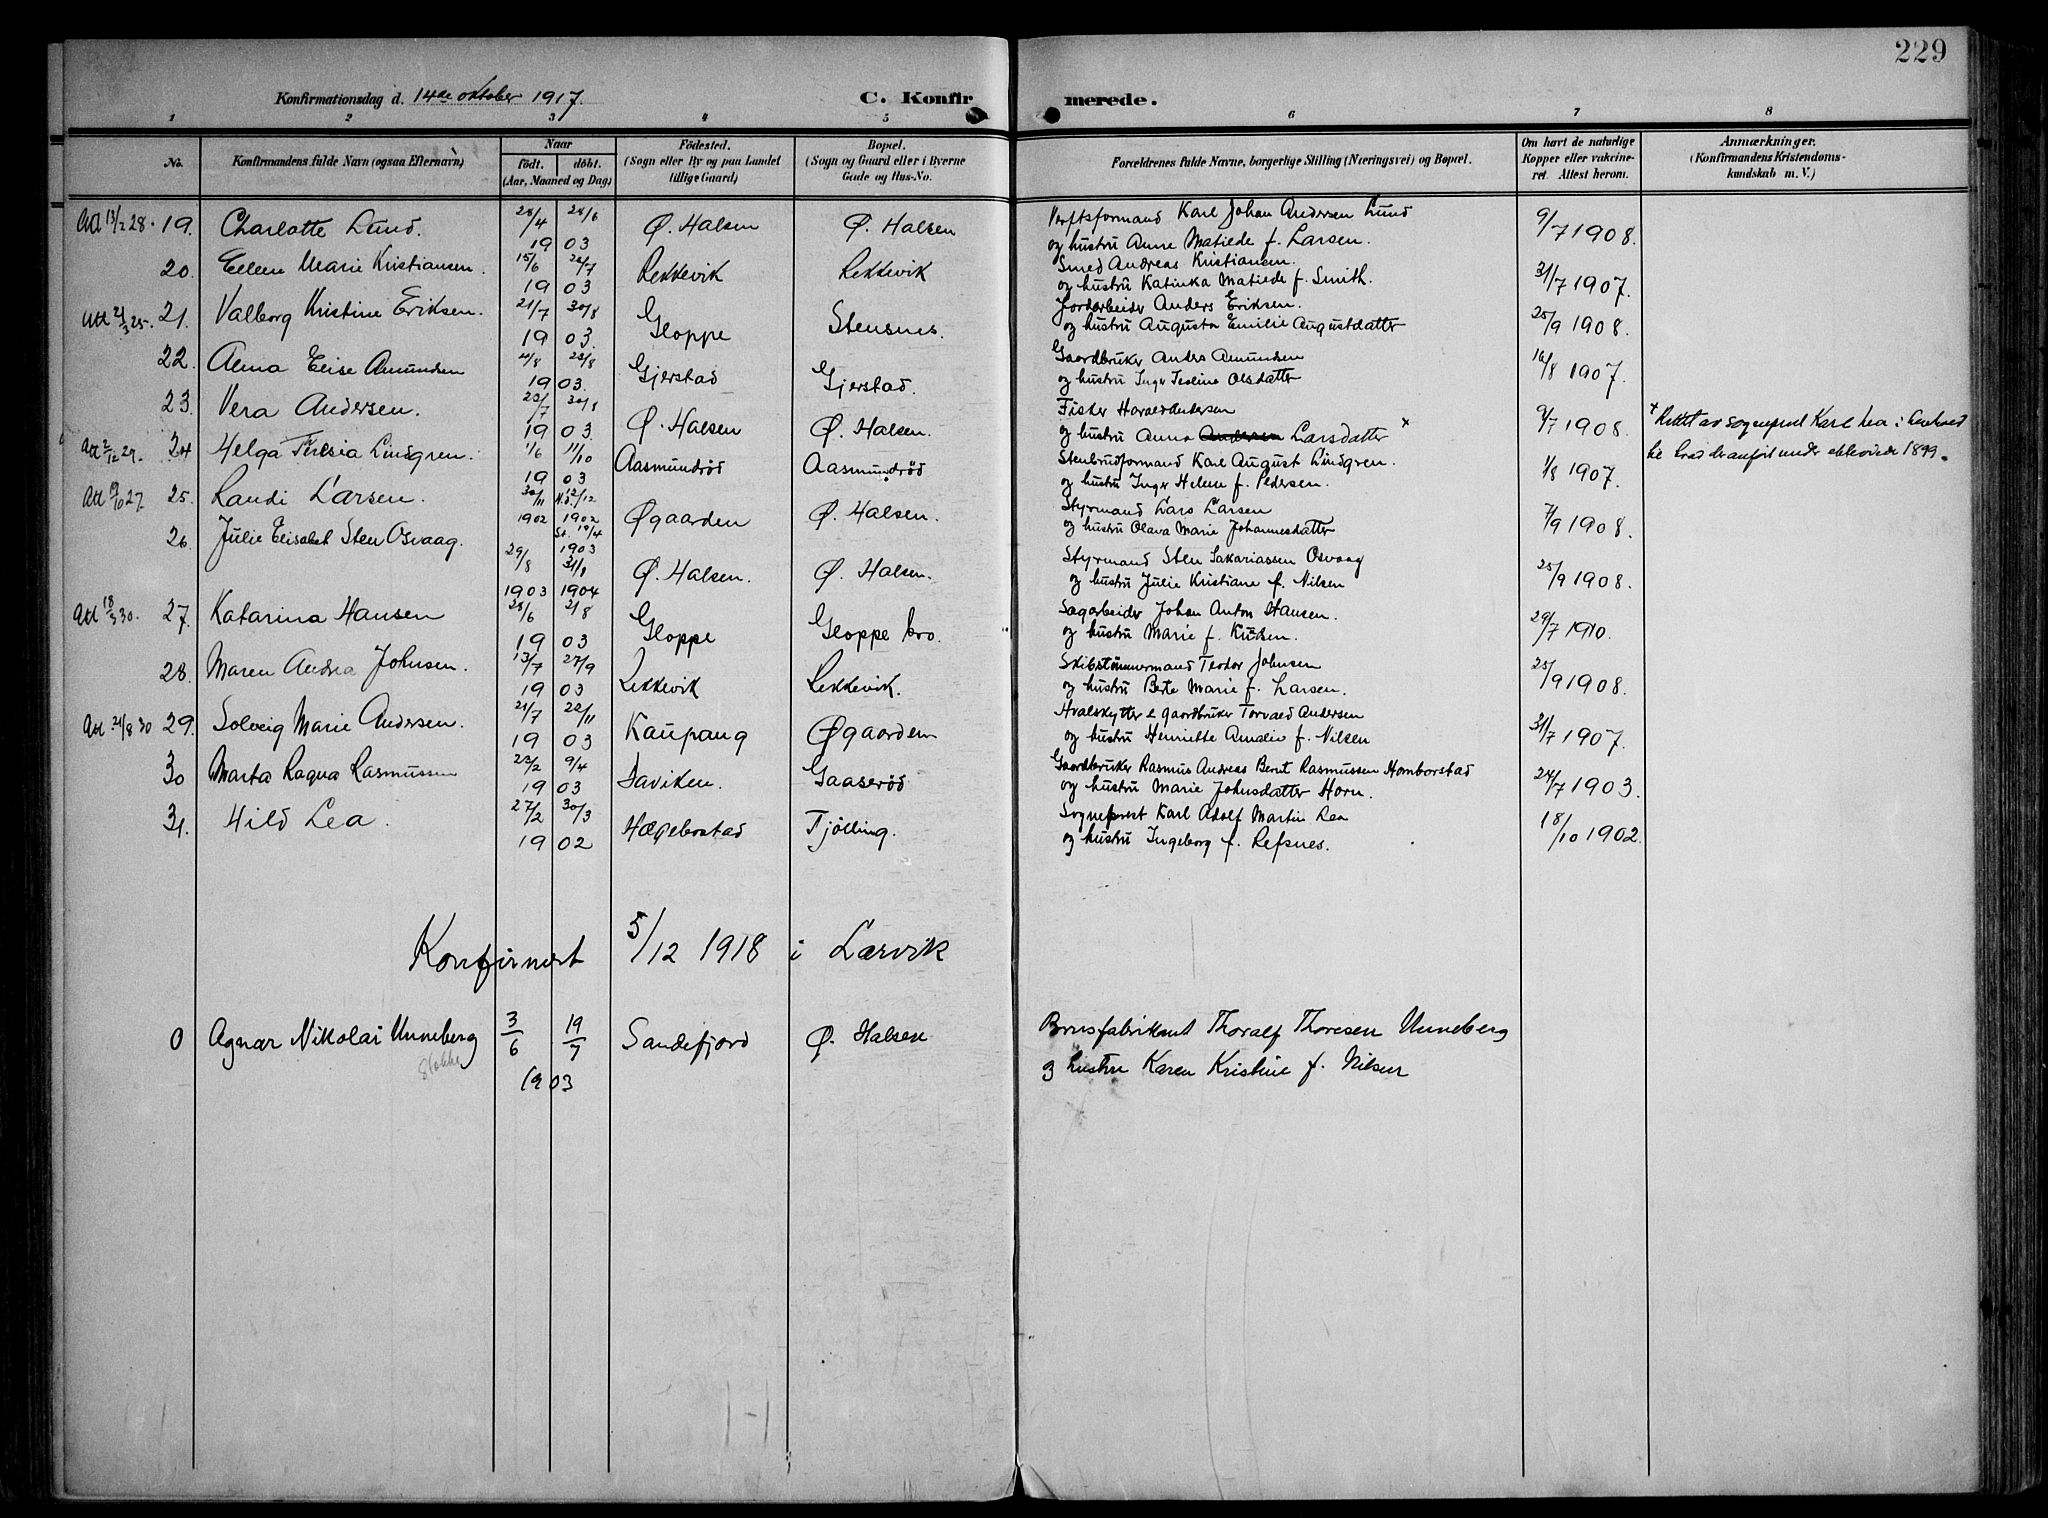 229
Konfirmationsdag d. 14de oktober 1917.
C. Konfirmerede.
1 2 3 4 5 6 7 8
No. Konfirmandens fulde Navn (ogsaa Efternavn) Naar født. døbt. (Aar, Maaned og Dag) Fødested. (Sogn eller By og paa Landet tillige Gaard) Bopæl. (Sogn og Gaard eller i Byerne Gade og Hus-No. Forældrenes fulde Navne, borgerlige Stilling (Næringsvei) og Bopæl. Om havt de naturlige Kopper eller vakcineret. Attest herom. Anmærkninger. (Konfirmandens Kristendomskundskab m. V.)
Att 13/2 28. 19. Charlotte Lund. 28/4 28/6 Ø. Halsen Ø. Halsen Verftsformand Karl Johan Andersen Lund 9/7 1908.
19 03 og hustru Anne Matilde f. Larsen.
20. Ellen Marie Kristiansen. 15/6 26/7 Rekkevik Rekkevik Smed Andreas Kristiansen. 31/7 1907.
19 03 og hustru Katinka Matilde f. Smith.
Att 21/3 25. 21. Valborg Kristine Eriksen. 21/7 30/8 Gloppe Stensnes. Jordarbeider Anders Eriksen. 25/9 1908.
19 03. og hustru Augusta Emilie Augustdatter
22. Alma Elise Amundsen 4/8 23/8 Gjerstad Gjerstad. Gaardbruker Anders Amundsen 16/8 1907.
19 03. og hustru Inger Teoline Olsdatter
23. Vera Andersen. 22/7 30/8 Ø. Halsen Ø. Halsen. Fisker Harald Andersen 9/7 1908.
19 03. og hustru Anna Andersen Larsdatter x
x Rettet av sogneprest Karl Lea i henhold
til hvad der anført under 1899.
Att 2/12 29. 24 Helga Theresia Lindgren. 1/6 11/10 Aasmundrød Aasmundrød Stenbrudformand Karl August Lindgren. 1/8 1907.
19 03 og hustru Inger Helene f. Pedersen.
Att 19/10 27. 25. Randi Larsen. 30/11 H.d. 12/12 Øgaarden Ø. Halsen. Styrmand Lars Larsen 7/9 1908.
1902 1902 og hustru Olava Marie Johannesdatter
St. 19/4
1903
26. Julie Elisabet Sten Osvaag. 29/8 31/1 Ø. Halsen. Ø. Halsen. Styrmand Sten Sakariassen Osvaag 25/9 1908.
1903 1904 og hustru Julie Kristiane f. Nilsen
Att 18/3 30. 27. Katarina Hansen 28/6 2/8 Gloppe Gloppe bro. Sagarbeider Johan Anton Hansen. 29/7 1910.
19 03 og hustru Marie f. Knudsen.
28. Maren Andrea Johnsen. 13/7 27/9 Rekkevik Rekkevik. Skibstømmermand Teodor Johnsen 25/9 1908.
19 03 og hustru Berte Marie f. Larsen.
Att 21/8 30 29. Solveig Marie Andersen. 21/7 22/11 Kaupang Øgaarden Hvalskytter & gaardbruker Torvald Andersen 31/7 1907.
19 03 og hustru Henriette Amalie f. Nilsen
30 Marta Ragna Rasmussen 22/2 9/4 Daviken. Gaaserød Gaardbruker Rasmus Andreas Bernt Rasmussen Homborstad 24/7 1903.
19 03 og hustru Marie Johnsdatter Horn.
31. Hild Lea. 27/2 30/3 Hægebostad Tjølling. Sogneprest Karl Adolf Martin Lea 18/10 1902.
19 02 og hustru Ingeborg f. Refsnes.
Konfirmert 5/12 1918 i Larvik
0 Agnar Nikolai Unneberg 3/6 19/7 Sandefjord Ø. Halsen Brusfabrikant Thoralf Thoresen Unneberg
Stokke
1903 og hustru Karen Kristine f. Nilsen